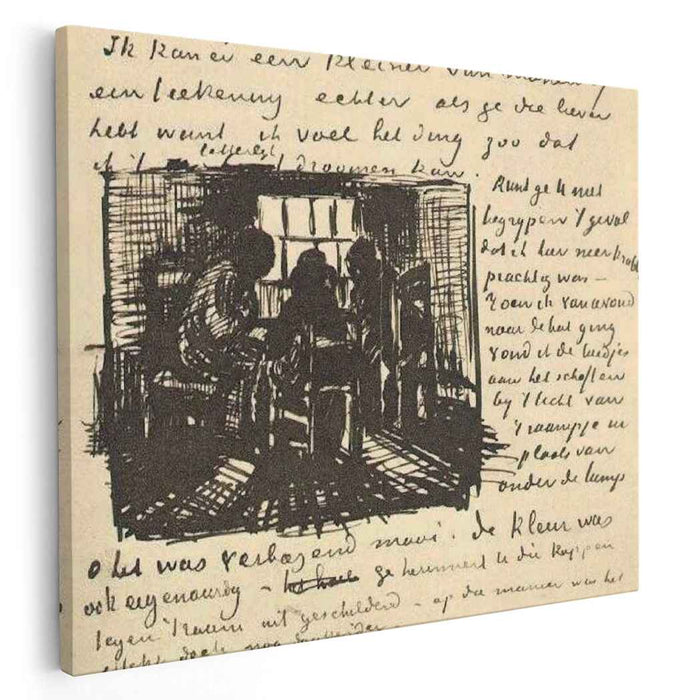 Ik kan er een kleiner van maken
een teekening echter als ge die liever
hebt want ik voel het ding zoo dat
ik 't letterlijk droomen kan.
Kunt ge U niet
begrijpen 't geval
dat ik hier neerkrabb
prachtig was –
Toen ik vanavond
naar de hut ging
vond ik de luidjes
aan het schoften
by 't licht van
't raampje in
plaats van
onder de lamp
o het was verbazend mooi. De kleur was
ook eigenaardig – ge herinnert U die koppen
tegen 't raam uit geschilderd – op die manier was het
effekt doch nog donkerder